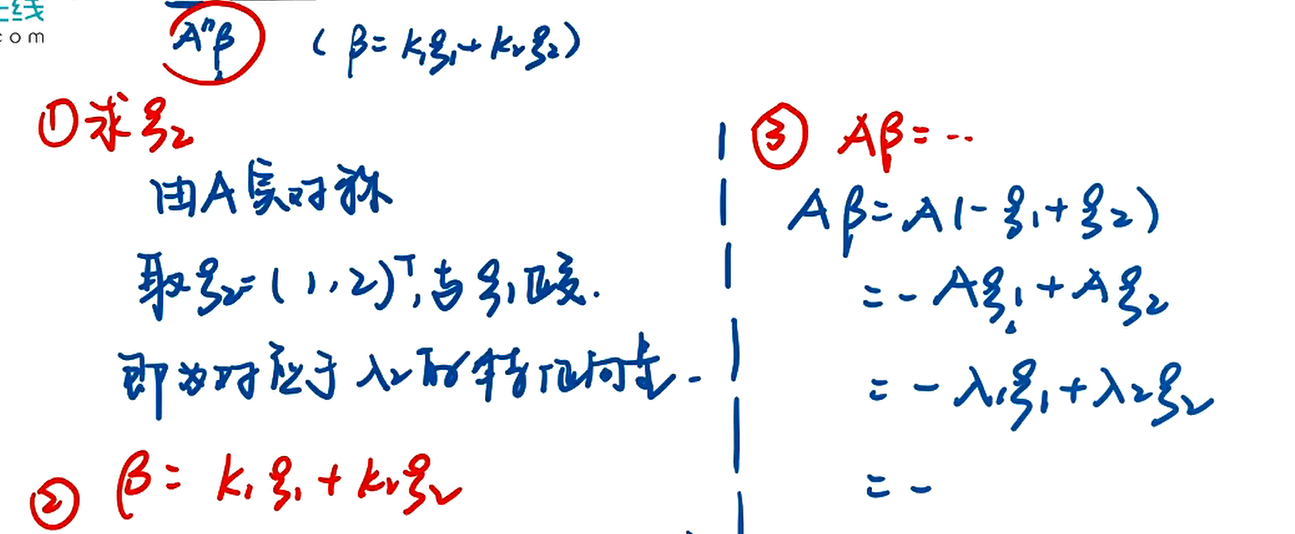 线
com
Aⁿβ (β=k₁ξ₁+k₂ξ₂)
①求ξ₂
由A实对称
取ξ₂=(1,2)ᵀ,与ξ₁正交.
即为对应于λ₂的特征向量.
② β=k₁ξ₁+k₂ξ₂
③ Aβ=…
Aβ=A(-ξ₁+ξ₂)
=-Aξ₁+Aξ₂
=-λ₁ξ₁+λ₂ξ₂
=-